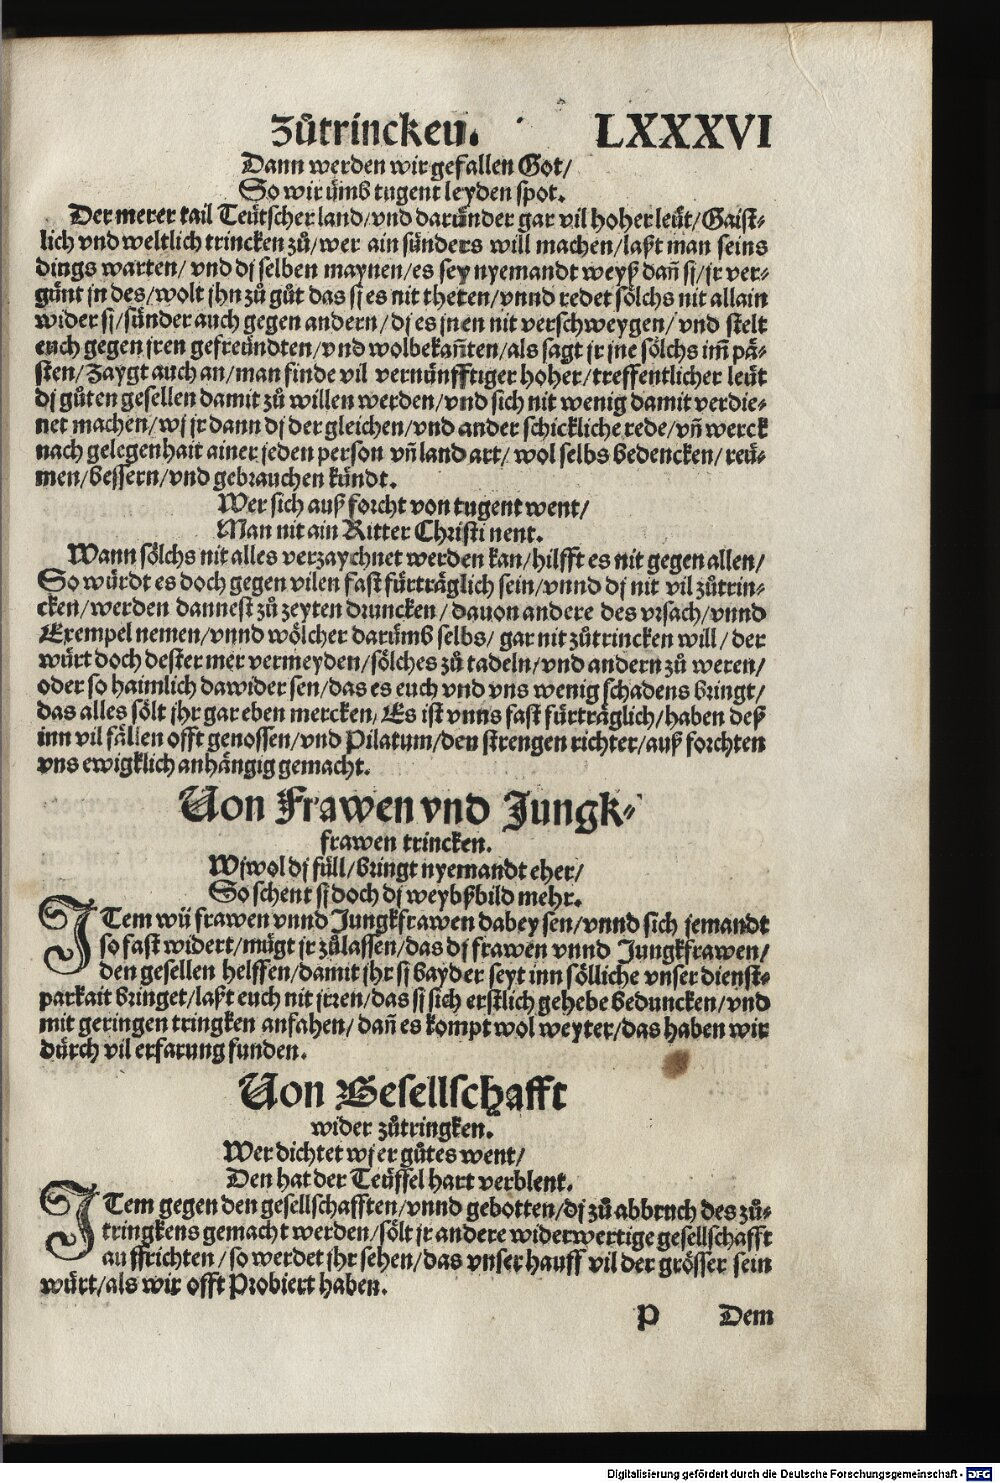 Zůtrincken. LXXXVI
Dann werden wir gefallen Got/
So wir ümb tugent leyden spot.
Der merer tail Teütscher land/vnd daründer gar vil hoher leüt/Gaist-
lich vnd weltlich trincken zů/wer ain sünders will machen/laßt man seins
dings warten/ vnd dj selben maynen/es sey nyemandt weyß dañ sj/jr ver-
günt jn des/wolt jhn zů gůt das sj es nit theten/vnnd redet sölchs nit allain
wider sj/sünder auch gegen andern/dj es jnen nit verschweygen/vnd stelt
euch gegen jren gefreündten/vnd wolbekañten/als sagt jr jne sölchs im̃ pä-
sten/Zaygt auch an/man finde vil vernünfftiger hoher/treffentlicher leüt
dj gůten gesellen damit zů willen werden/vnd sich nit wenig damit verdie-
net machen/wj jr dann dj der gleichen/vnd ander schickliche rede/vñ werck
nach gelegenhait ainer jeden person vñ land art/ wol selbs bedencken/reü-
men/bessern/vnd gebrauchen kündt.
Wer sich auß forcht von tugent went/
Man nit ain Ritter Christi nent.
Wann sölchs nit alles verzaychnet werden kan/hilfft es nit gegen allen/
So würdt es doch gegen vilen fast fürträglich sein/vnnd dj nit vil zůtrin-
cken/werden dannest zů zeyten druncken/dauon andere des vrsach/vnnd
Exempel nemen/vnnd wölcher darümb selbs/ gar nit zůtrincken will/der
würt doch dester mer vermeyden/sölches zů tadeln/vnd andern zů weren/
oder so haimlich dawider sen/das es euch vnd vns wenig schadens bringt/
das alles sölt jhr gar eben mercken/Es ist vnns fast fürträglich/haben deß
inn vil fällen offt genossen/vnd Pilatum/den strengen richter/auß forchten
vns ewigklich anhängig gemacht.
Von Frawen vnd Jungk-
frawen trincken.
Wjwol dj füll/bringt nyemandt eher/
So schent sj doch dj weybßbild mehr.
JTem wü frawen vnnd Jungkfrawen dabey sen/vnnd sich jemandt
so fast widert/mügt jr zůlassen/das dj frawen vnnd Jungkfrawen/
den gesellen helffen/damit jhr sj bayder seyt inn sölliche vnser dienst-
parkait bringet/laßt euch nit jrren/das sj sich erstlich gehebe beduncken/vnd
mit geringen tringken anfahen/dañ es kompt wol weyter/das haben wir
dürch vil erfarung funden.
Von Gesellschafft
wider zůtringken.
Wer dichtet wj er gůtes went/
Den hat der Teüffel hart verblent.
JTem gegen den gesellschafften/vnnd gebotten/dj zů abbruch des zů-
tringkens gemacht werden/sölt jr andere widerwertige gesellschafft
auffrichten/so werdet jhr sehen/das vnser hauff vil der grösser sein
würt/als wir offt Probiert haben.
P Dem
Digitalisierung gefördert durch die Deutsche Forschungsgemeinschaft - DFG